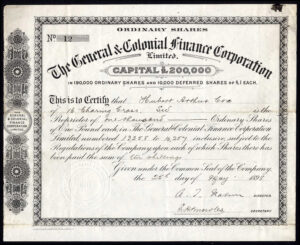 ORDINARY SHARES
No 12
The General & Colonial Finance Corporation
Limited.
CAPITAL £200,000
IN 190,000 ORDINARY SHARES AND 10,000 DEFERRED SHARES OF £1 EACH.
This is to Certify that
of Charing Cross, is the
Proprietor of One thousand Ordinary Shares
of One Pound each in The General & Colonial Finance Corporation
Limited, numbered inclusive, subject to the
Regulations of the Company upon each of which Shares there has
been paid the sum of ten shillings
Given under the Common Seal of the Company,
the 25th day of May 1895
DIRECTOR
SECRETARY